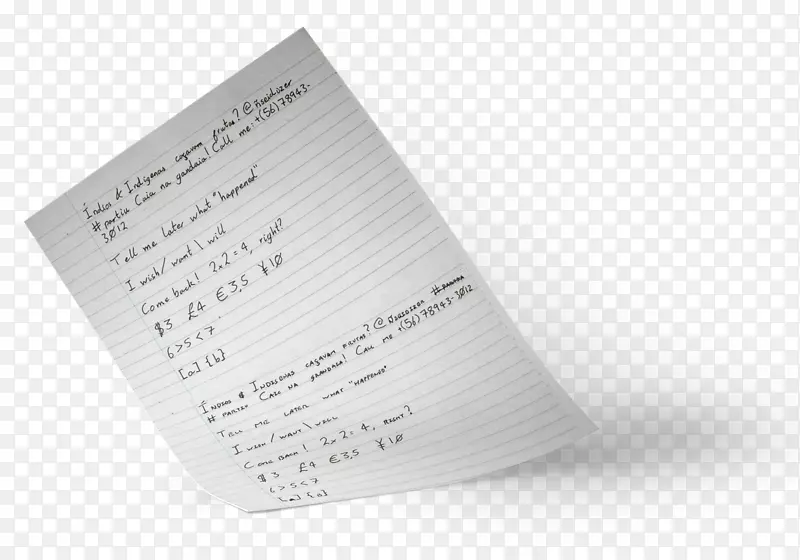 Índios & Indígenas caçavam frutas? @ñseidozer
#partiu Caia na gandaia! Call me: +(56)78943-
3012
Tell me later what "happened"
I wish/want\will
Come back! 2x2=4, right?
$3 £4 €3,5 ¥10
6>5<7.
[a]{b}
Índios & Indígenas caçavam frutas? @
# partiu Caia na gandaia! Call me +(56)78943-3012
Tell me later what "happened"
I wish/want\will
Come back! 2x2=4, right?
$3 £4 €3,5 ¥10
6>5<7
[a]{b}